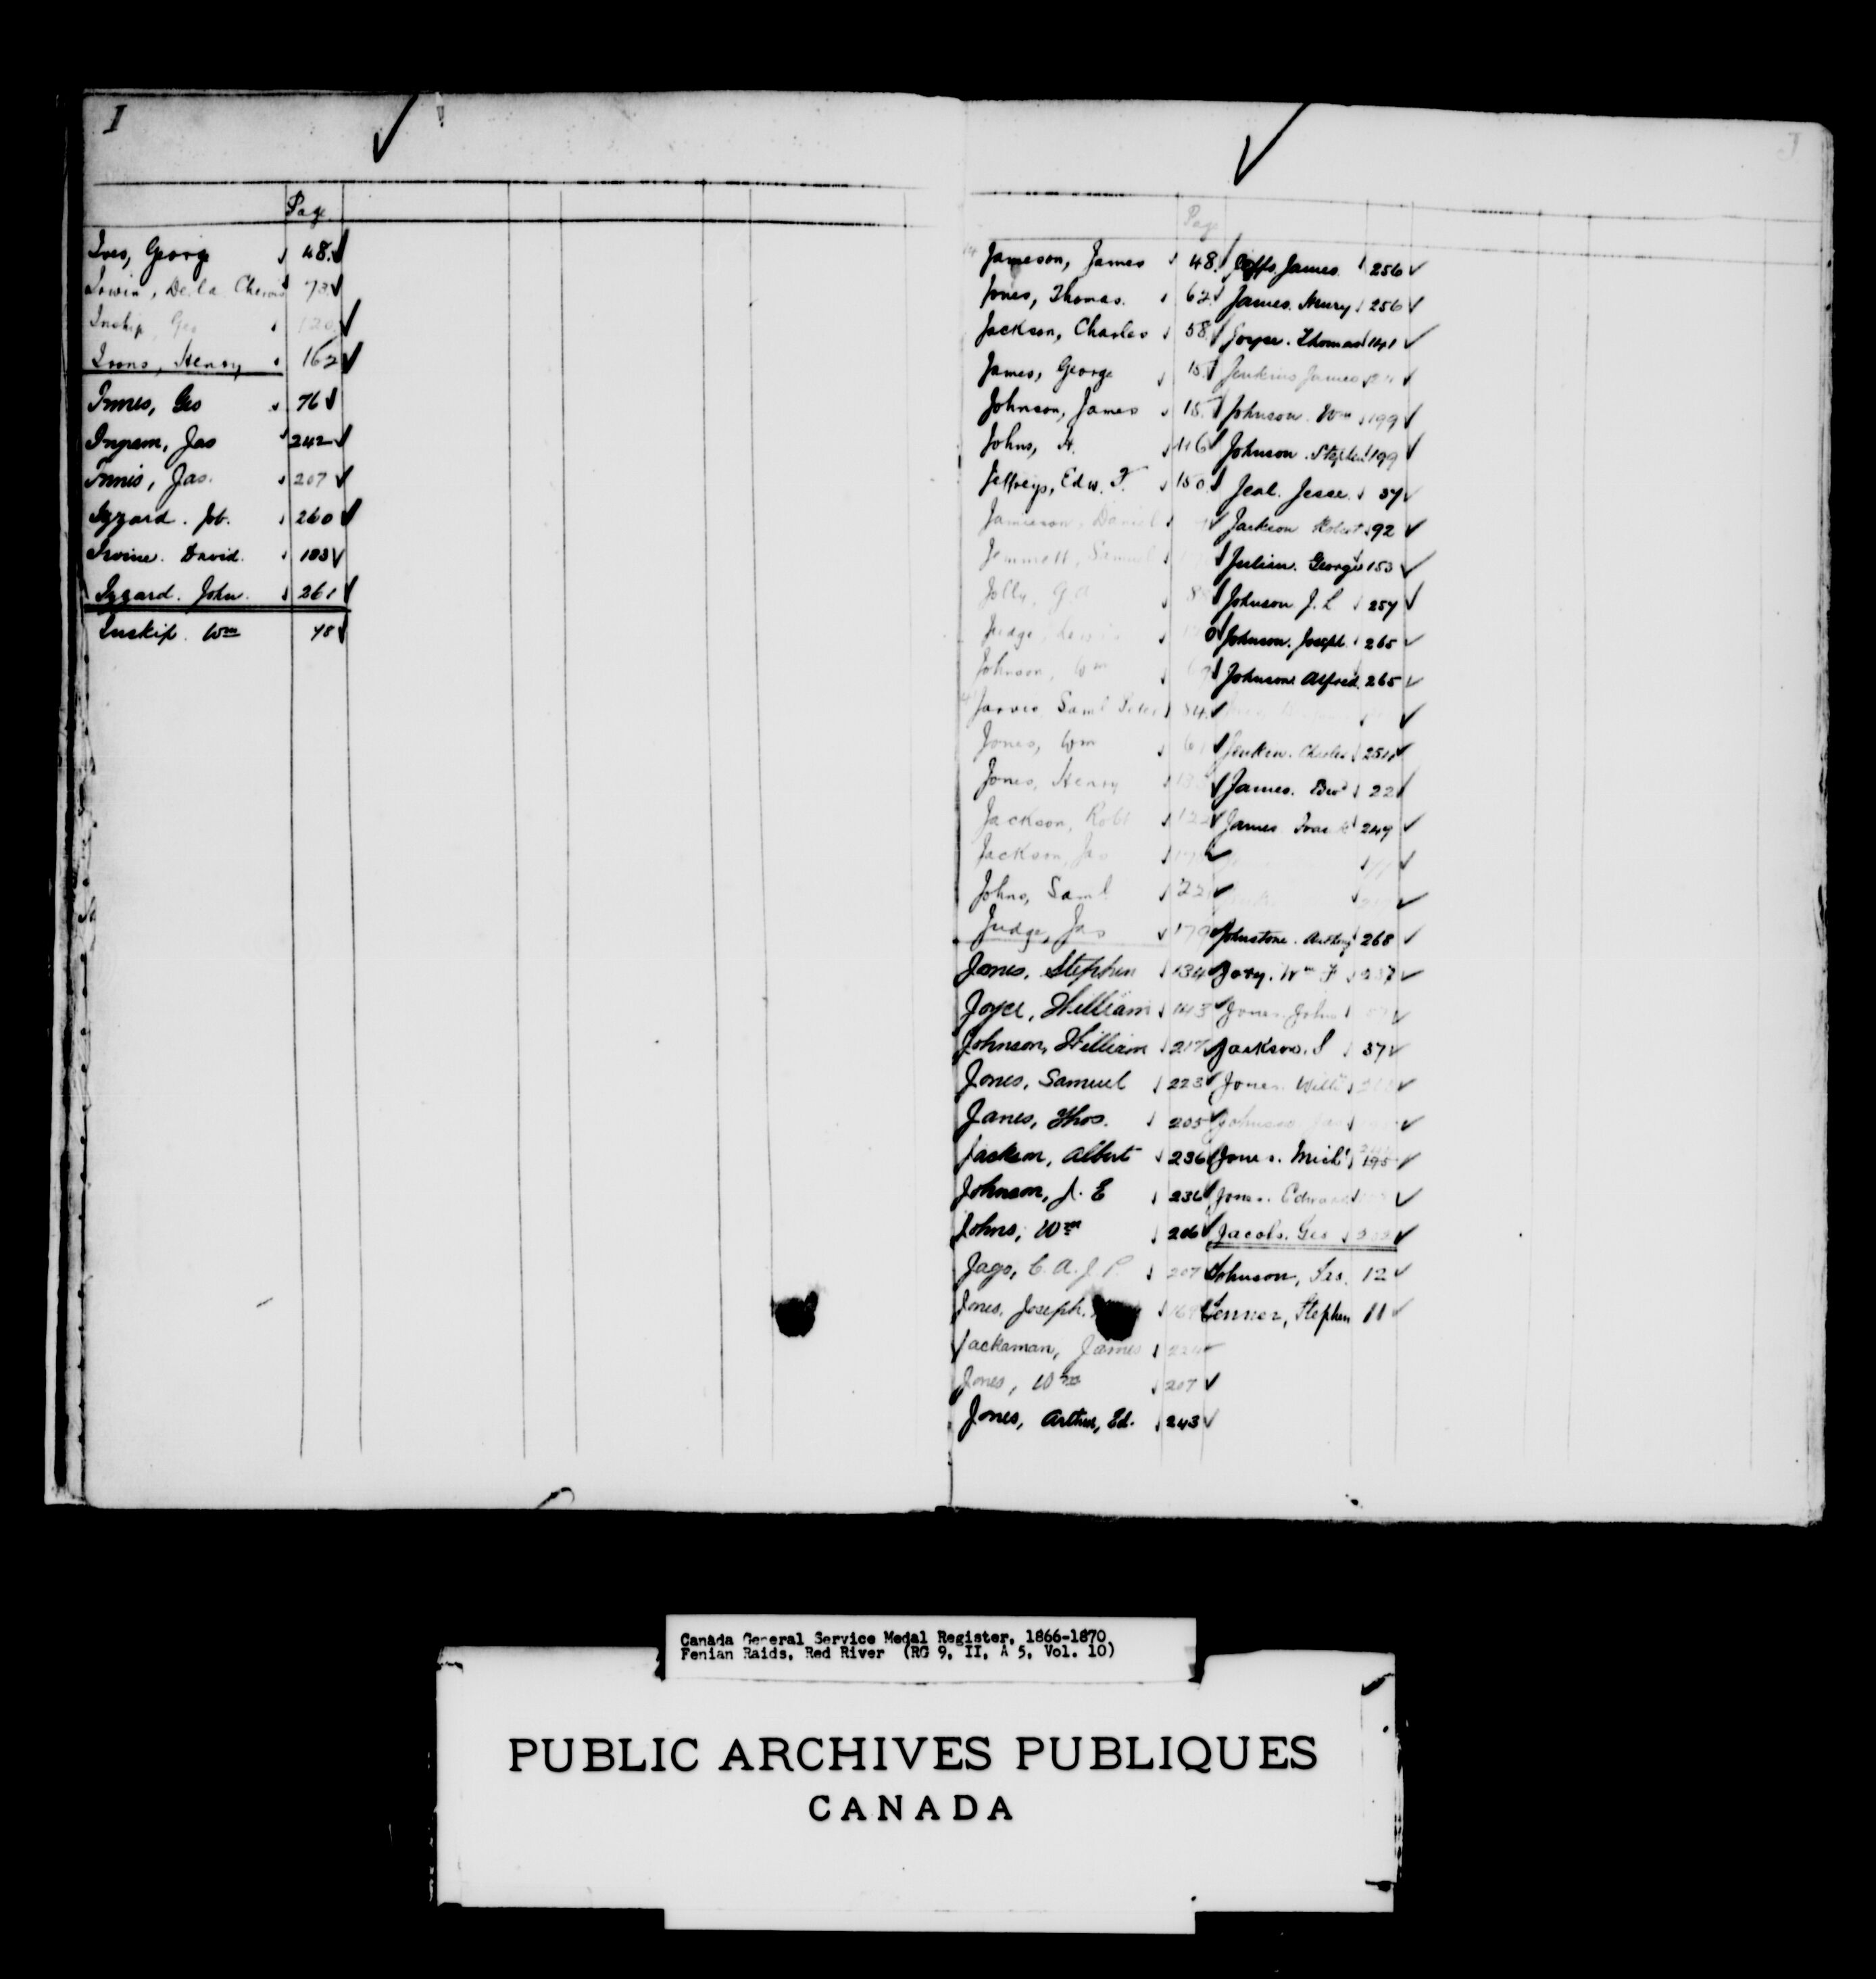 I
Page
Ives, George 48.
Irwin, De la Cherois 73
Inskip, Geo 120
Irons, Henry 162
Innes, Geo 76
Ingram, Jas 242
Innis, Jas. 207
Izzard. Job. 260
Irvine. David. 183
Izzard. John. 261
Inskip. Wm 45
J
Page
Jameson, James 48.
Jones, Thomas. 62
Jackson, Charles 58
James, George 15
Johnson, James 15
Johns, H. 116
Jeffreys, Edw. F. 150
Jamieson, Daniel
Jemmett, Samuel
Jolly, G.A
Judge, Lewis
Johnson, Wm
Jarvis, Saml Peter 54
Jones, Wm 61
Jones, Henry
Jackson, Robt 122
Jackson, Jas
Johns, Saml 22
Judge, Jas 179
Jones, Stephen 134
Joyce, William 143
Johnson, William 217
Jones, Samuel 223
Janes, Thos. 205
Jackson, Albert 236
Johnson, J. E 236
Johns, Wm 206
Jago, C. A. J. P. 207
Jones, Joseph.
Jackaman, James 224
Jones, Wm 207
Jones, Arthur, Ed. 243
James. 256
James. Henry 256
Joyce. Thomas 141
Jenkins James
Johnson. Wm 199
Johnson. Stephen 199
Jeal. Jesse. 37
Jackson Robert 92
Julian. George 153
Johnson J. L 257
Johnson. Joseph. 265
Johnson. Alfred. 265
Jenkin. Charles 251
James. Edwd 22
James Isaac 247
Johnstone. Anthony 268
Jory. Wm F 237
Jones. John
Jackson. S 37
Jones. Willm
Johnson Jas
Jones. Michl 195
Jones. Edward
Jacobs. Geo
Johnson, Jas. 12
Jenner, Stephen 11
Canada General Service Medal Register, 1866-1870
Fenian Raids, Red River (RG 9, II, A 5, Vol. 10)
PUBLIC ARCHIVES PUBLIQUES
CANADA